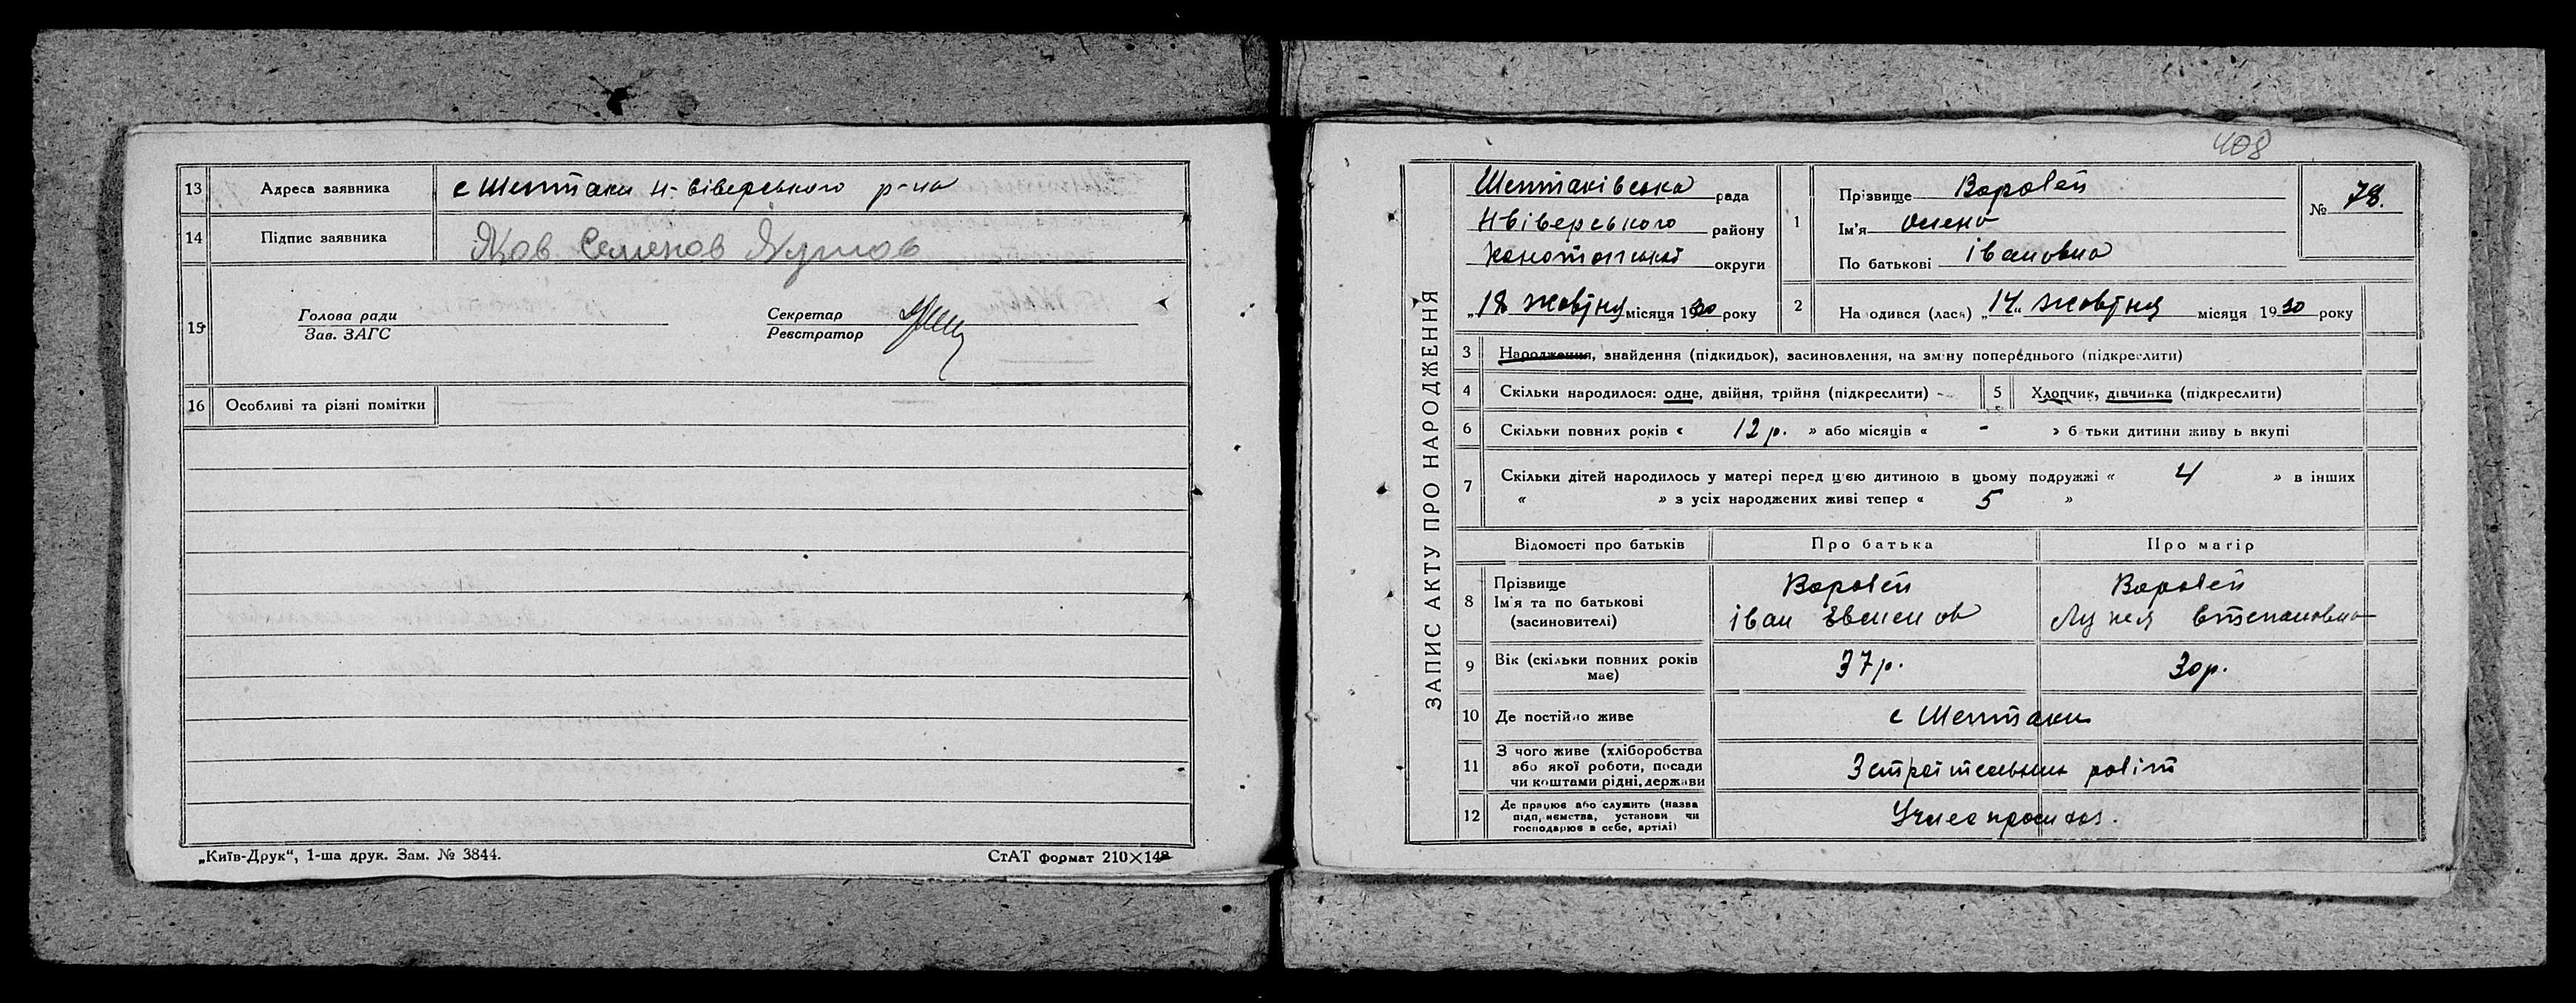 13 Адреса заявника с Шептаки Н-Сіверського р-на
14 Підпис заявника Яков Семенов
15 Голова ради
Зав. ЗАГС
Секретар
Реєстратор
16 Особливі та різні помітки
„Київ-Друк“, 1-ша друк. Зам. № 3844.
СтАТ формат 210×148
408
ЗАПИС АКТУ ПРО НАРОДЖЕННЯ
Шептаківська рада
Н Сіверського району
Конотопської округи
„18 жовтня місяця 1930 року
1 Прізвище Воробей
Ім'я Олена
По батькові Івановна
№ 78.
2 Народився (лась) „14“ жовтня місяця 1930 року
3 Народження, знайдення (підкидьок), засиновлення, на зміну попереднього (підкреслити)
4 Скільки народилося: одне, двійня, трійня (підкреслити) -
5 Хлопчик, дівчинка (підкреслити)
6 Скільки повних років « 12 р. » або місяців « - » батьки дитини живуть вкупі
7 Скільки дітей народилось у матері перед цією дитиною в цьому подружжі « 4 » в інших
« » з усіх народжених живі тепер « 5 »
Відомості про батьків Про батька Про матір
8 Прізвище
Ім'я та по батькові
(засиновителі)
Воробей
Іван
Воробей
9 Вік (скільки повних років
має)
37 р. 30 р.
10 Де постійно живе с Шептаки
11 З чого живе (хліборобства
або якої роботи, посади
чи коштами рідні, держави
робіт
12 Де працює або служить (назва
підприємства, установи чи
господарює в себе, артілі)